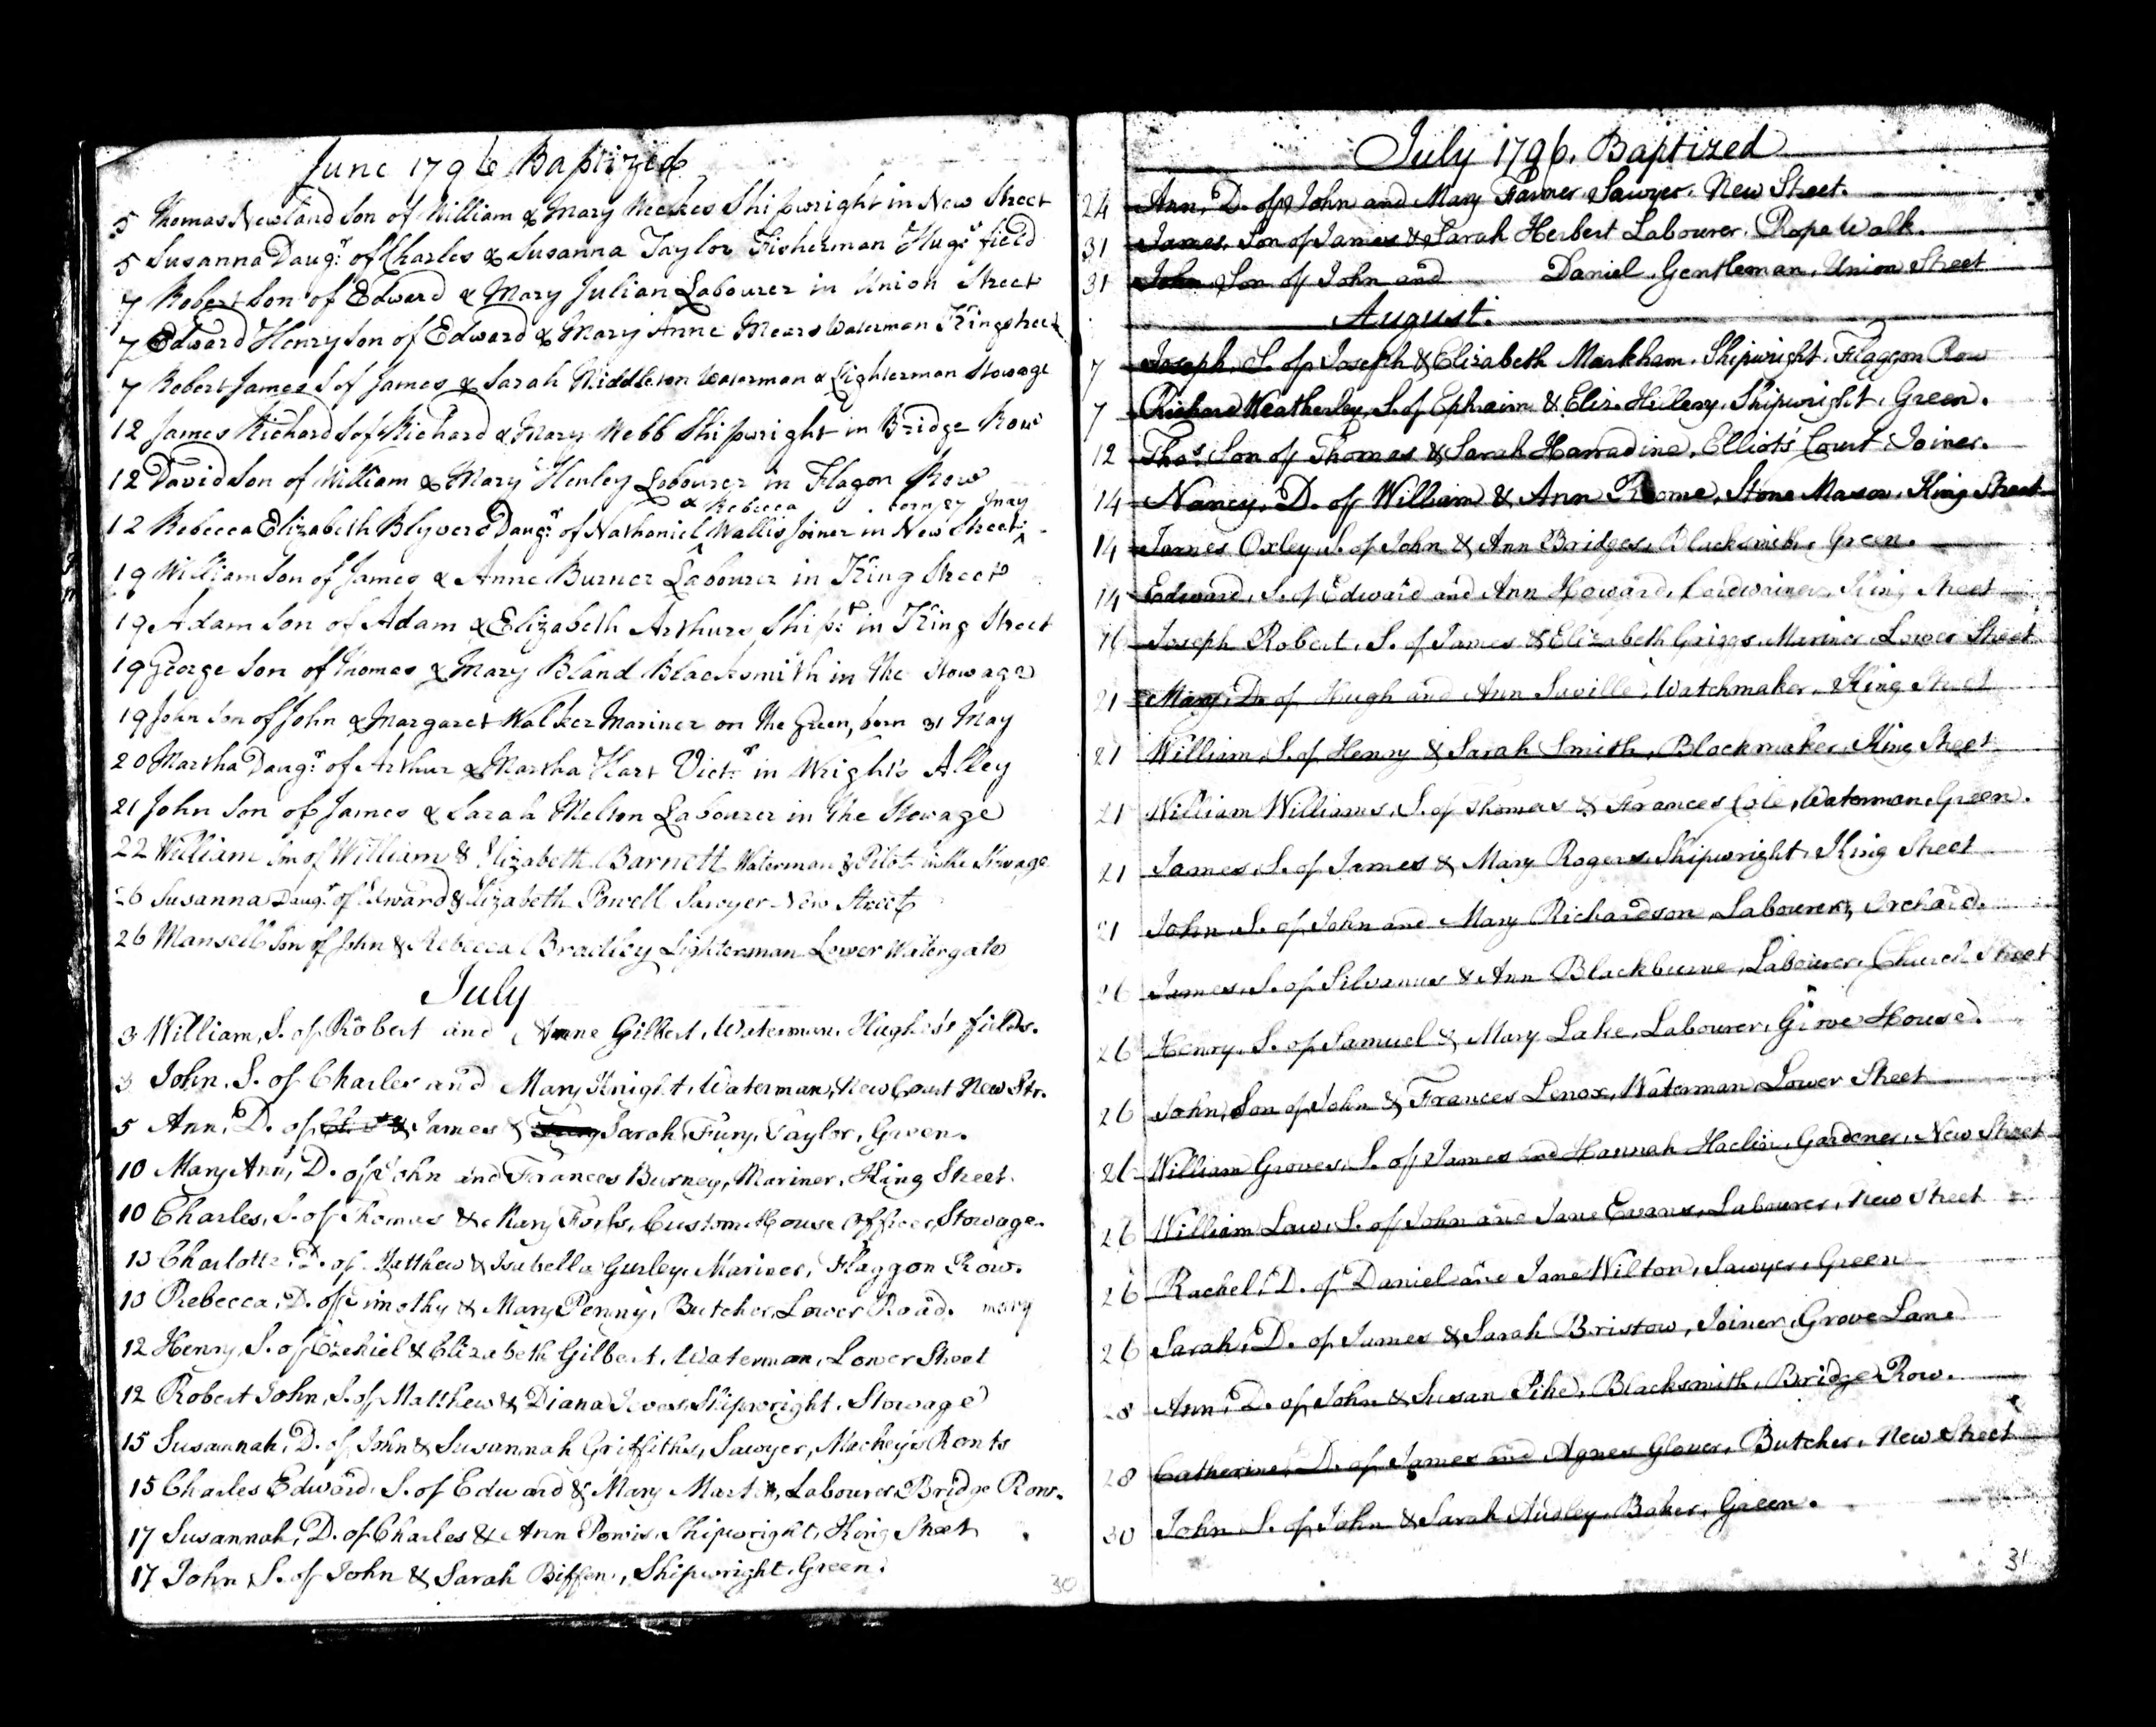 June 1796 Baptized
5 Thomas Newland Son of William & Mary Meekes Shipwright in New Street
5 Susanna Daugr. of Charles & Susanna Taylor Fisherman Hugs. field
7 Robert Son of Edward & Mary Julian Labourer in Union Street
7 Edward Henry Son of Edward & Mary Anne Mears Waterman Kingstreet
7 Robert James S of James & Sarah Middleton Waterman & Lighterman Stowage
12 James Richard S of Richard & Mary Webb Shipwright in Bridge Row
12 David Son of William & Mary Henley Labourer in Flagon Row
& Rebecca born 27 May
12 Rebecca Elizabeth Blyverd Daugr. of Nathaniel Wallis Joiner in New Street
19 William Son of James & Anne Burner Labourer in King Street
19 Adam Son of Adam & Elizabeth Arthurs Shipt. in King Street
19 George Son of Thomas & Mary Bland Blacksmith in the Stowage
19 John Son of John & Margaret Walker Mariner on the Green, born 31 May
20 Martha Daugr. of Arthur & Martha Hart Victr. in Wright's Alley
21 John Son of James & Sarah Melton Labourer in the Stowage
22 William Son of William & Elizabeth Barnett Waterman & Pilot in the Stowage
26 Susanna Daugr. of Edward & Elizabeth Powell Sawyer New Street
26 Mansell Son of John & Rebecca Bradley Lighterman Lower Watergate
July
3 William, S. of Robert and Anne Gilbert, Waterman, Hughes's fields.
3 John, S. of Charles and Mary Knight, Waterman, New Court New Str.
5 Ann, D. of James & Sarah Fury, Taylor, Green.
10 Mary Ann, D. of John and Frances Burney, Mariner, King Street.
10 Charles, S. of Thomas & Mary Forks, Custom House Officer, Stowage.
13 Charlotte, D. of Matthew & Isabella Gurley, Mariner, Flaggon Row.
10 Rebecca, D. of Timothy & Mary Penny, Butcher, Lower Road. mary
12 Henry, S. of Ezekiel & Elizabeth Gilbert, Waterman, Lower Street
12 Robert John, S. of Matthew & Diana Ives, Shipwright, Stowage
15 Susannah, D. of John & Susannah Griffiths, Sawyer, Mackey's Rents
15 Charles Edward, S. of Edward & Mary Martin, Labourer, Bridge Row.
17 Susannah, D. of Charles & Ann Powis, Shipwright, King Street
17 John, S. of John & Sarah Biffen, Shipwright, Green.
30
July 1796. Baptized
24 Ann, D. of John and Mary Farmer, Sawyer, New Street.
31 James, Son of James & Sarah Herbert Labourer, Rope Walk.
31 John Son of John and Daniel, Gentleman, Union Street
August.
7 Joseph, S. of Joseph & Elizabeth Markham, Shipwright, Flaggon Row
7 Richard Weatherley, S. of Ephraim & Eliz. Hillery, Shipwright, Green.
12 Thos. Son of Thomas & Sarah Harradine, Elliot's Court Joiner.
14 Nancy, D. of William & Ann Roome, Stone Mason, King Street
14 James Oxley, S. of John & Ann Bridges, Blacksmith, Green.
14 Edward, S. of Edward and Ann Howard, Cordwainer, King Street
16 Joseph Robert, S. of James & Elizabeth Griggs, Mariner, Lower Street
21 Mary, D. of Hugh and Ann Saville, Watchmaker, King Street
21 William, S. of Henry & Sarah Smith, Blockmaker, King Street
21 William Williams, S. of Thomas & Frances Cole, Waterman, Green.
21 James, S. of James & Mary Rogers, Shipwright, King Street
21 John, S. of John and Mary Richardson, Labourer, Orchard.
26 James, S. of Silvanus & Ann Blackburne, Labourer, Church Street
26 Henry, S. of Samuel & Mary Lake, Labourer, Grove House.
26 John, Son of John & Frances Lenox, Waterman, Lower Street
26 William Groves, S. of James and Hannah Haclin, Gardener, New Street
26 William Law, S. of John and Jane Evans, Labourer, New Street
26 Rachel, D. of Daniel and Jane Wilton, Sawyer, Green
26 Sarah, D. of James & Sarah Bristow, Joiner, Grove Lane
28 Ann, D. of John & Susan Pike, Blacksmith, Bridge Row.
28 Catherine, D. of James and Agnes Glover, Butcher, New Street
30 John S. of John & Sarah Ausley, Baker, Green.
31